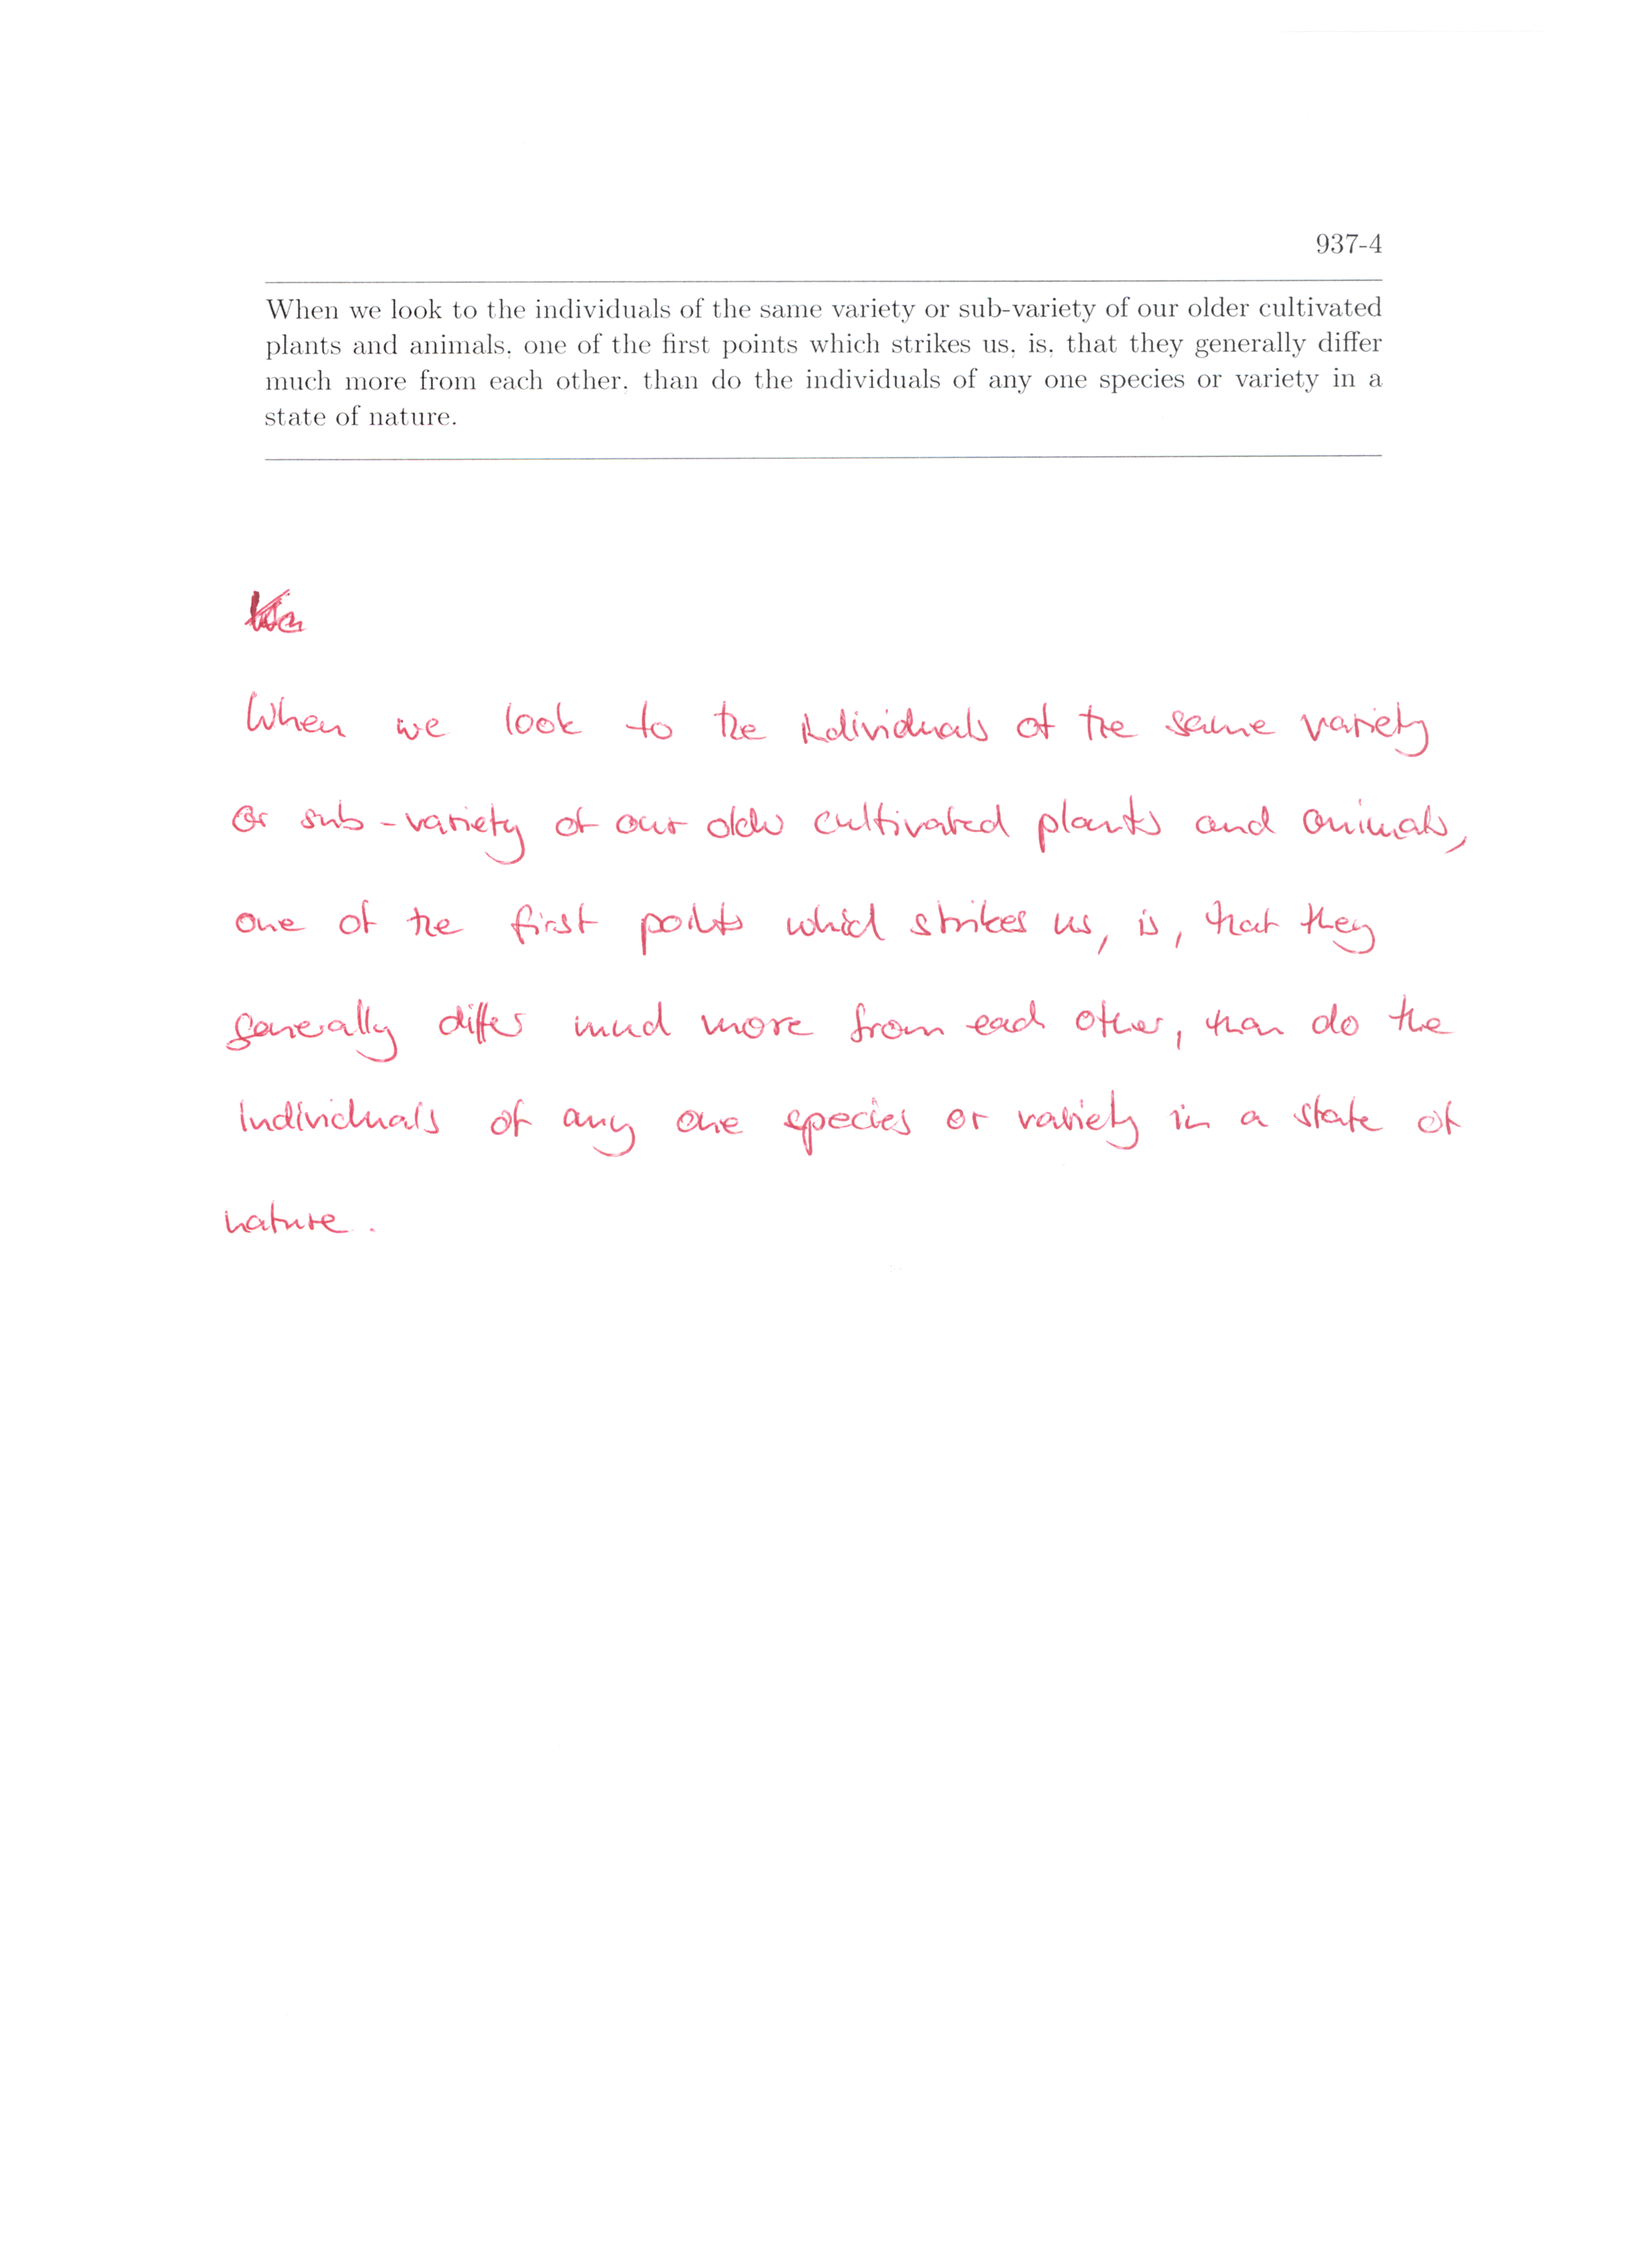 937-4
When we look to the individuals of the same variety or sub-variety of our older cultivated
plants and animals, one of the first points which strikes us, is, that they generally differ
much more from each other, than do the individuals of any one species or variety in a
state of nature.
When we look to the individuals of the same variety
or sub-variety of our older cultivated plants and animals,
one of the first points which strikes us, is, that they
generally differ much more from each other, than do the
individuals of any one species or variety in a state of
nature.